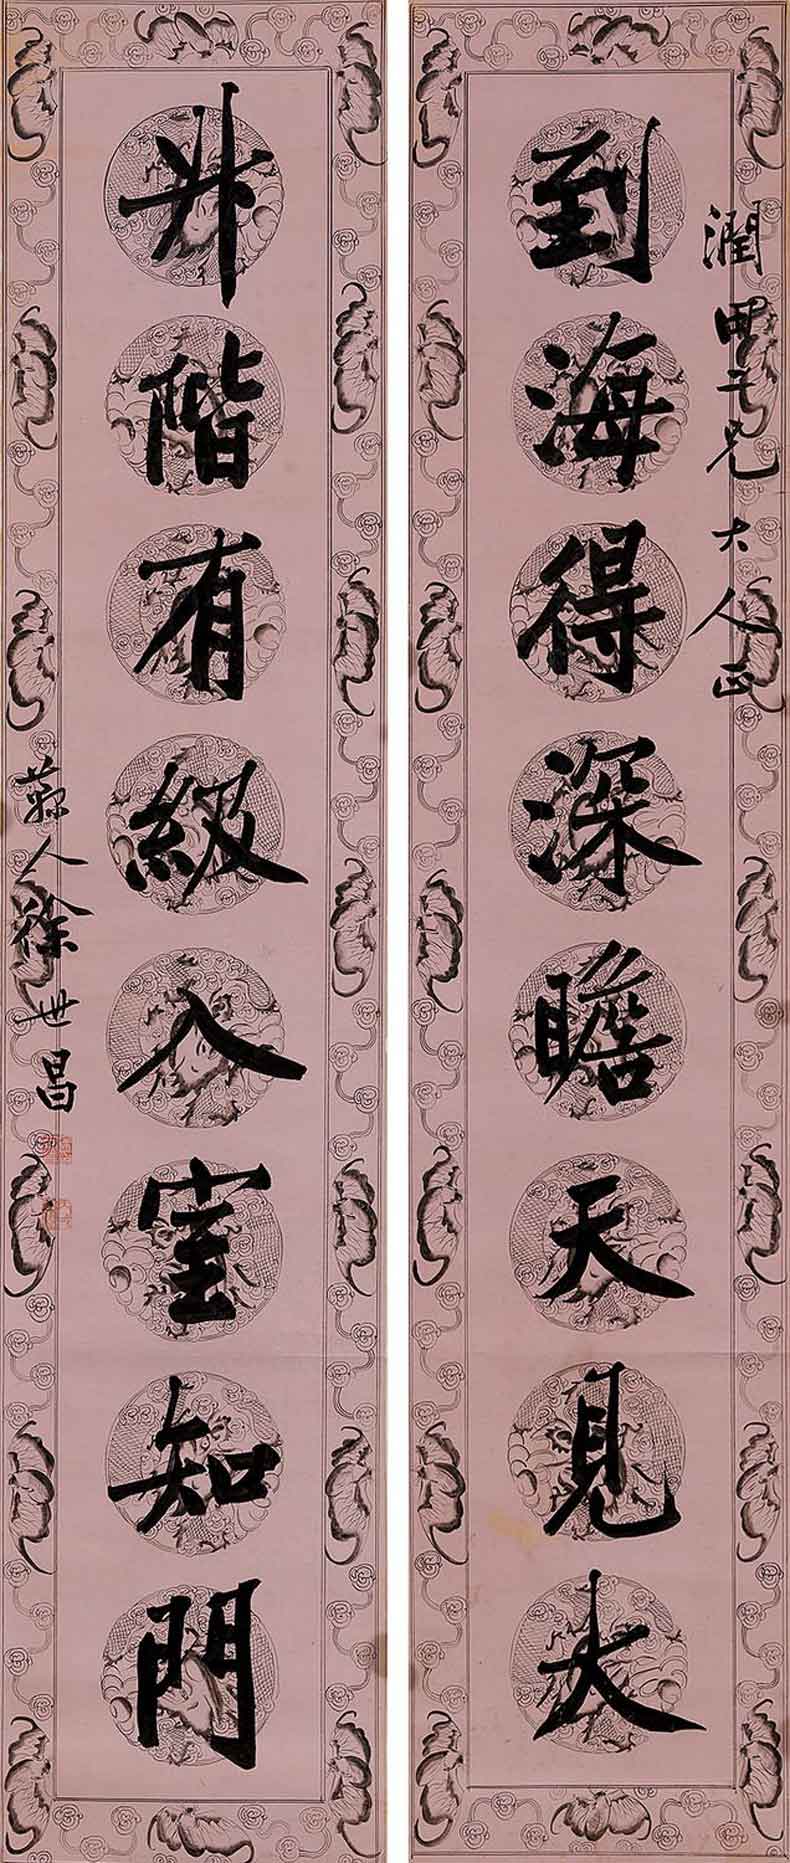 潤甫二兄大人正
到海得深瞻天見大
升階有級入室知門
蘇人徐世昌